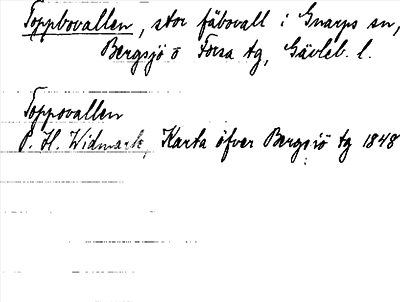 Toppbovallen, stor fäbovall i Gnarps sn,
Bergsjö o Forsa tg, Gävleb. l.
Toppovallen
P. H. Widmark, Karta öfver Bergsjö tg 1848